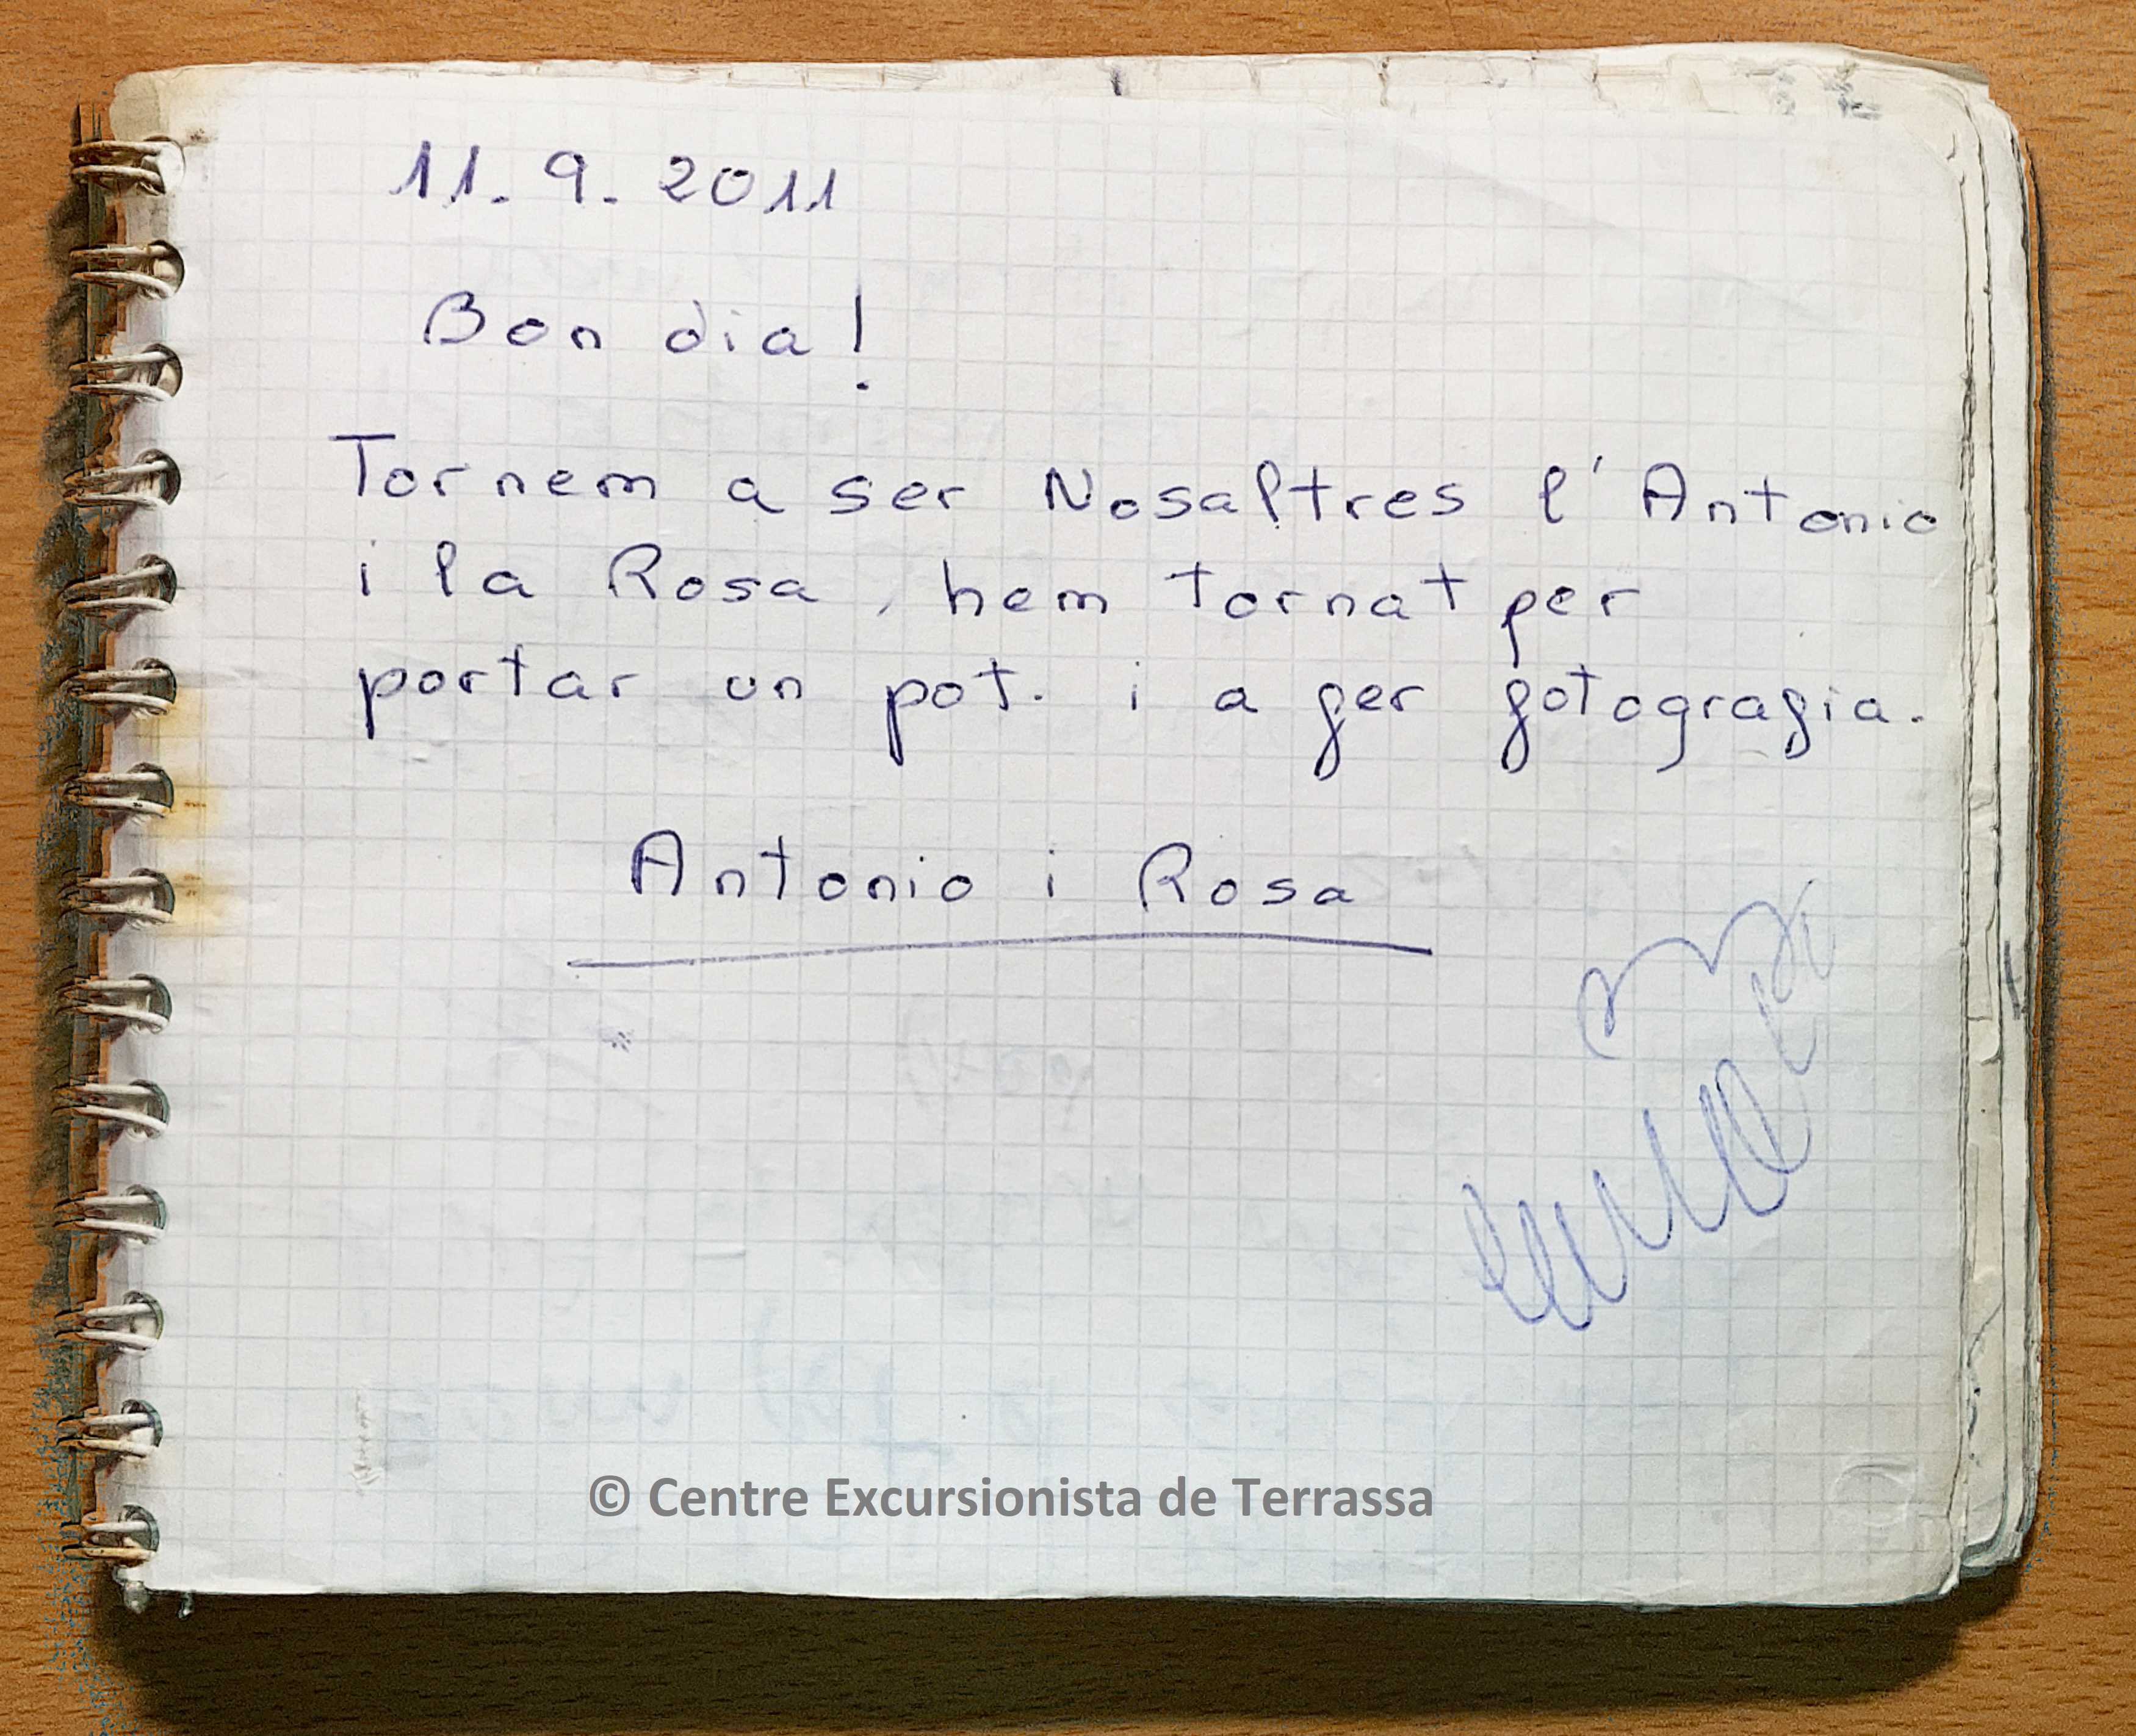 11. 9. 2011
Bon dia!
Tornem a ser Nosaltres l'Antonio
i la Rosa, hem tornat per
portar un pot. i a fer fotografia.
Antonio i Rosa
© Centre Excursionista de Terrassa